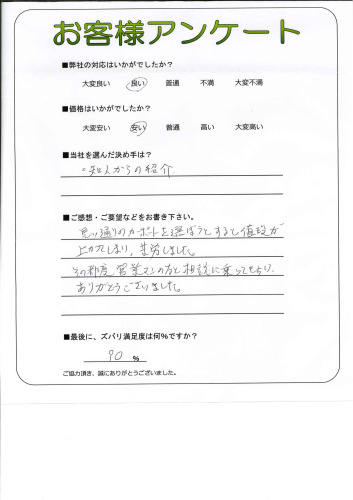 お客様アンケート
■弊社の対応はいかがでしたか?
大変良い 良い 普通 不満 大変不満
■価格はいかがでしたか?
大変安い 安い 普通 高い 大変高い
■当社を選んだ決め手は?
・知人からの紹介
■ご感想・ご要望などをお書き下さい。
思い通りのカーポートを選ぼうとすると値段が
上がってしまい、苦労しました。
その都度、営業マンの方と相談に乗ってもらい、
ありがとうございました。
■最後に、ズバリ満足度は何%ですか?
90 %
ご協力頂き、誠にありがとうございました。